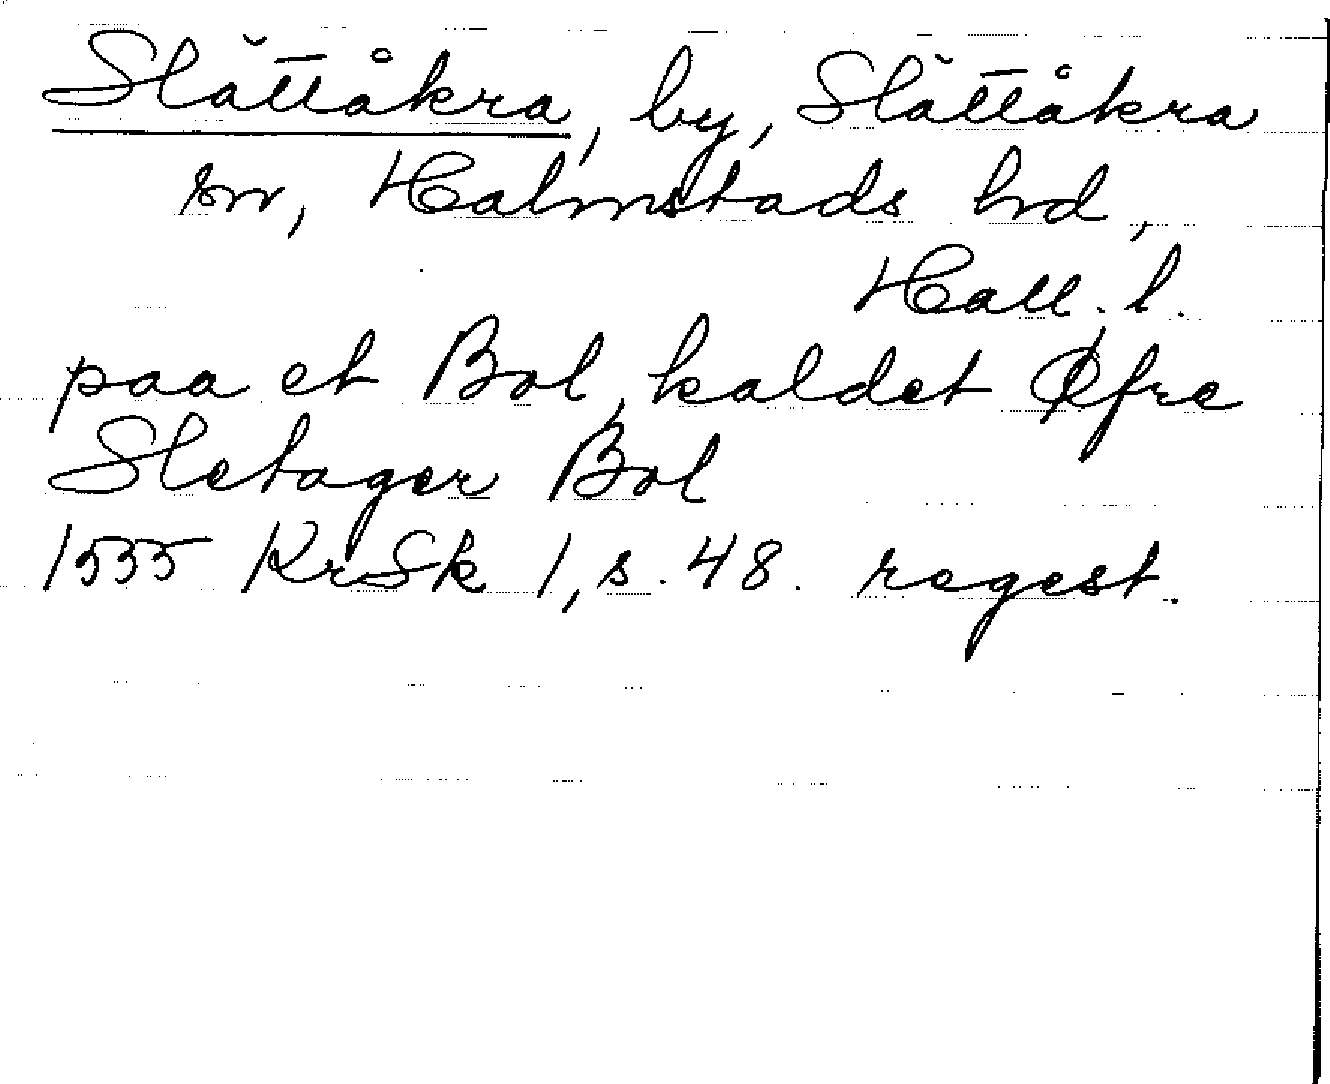 Slättåkra, by, Slättåkra
sn, Halmstads hrd,
Hall. l.
paa et Bol, kaldet Øfre
Sletager Bol
1535 KrSk 1, s. 48. regest.